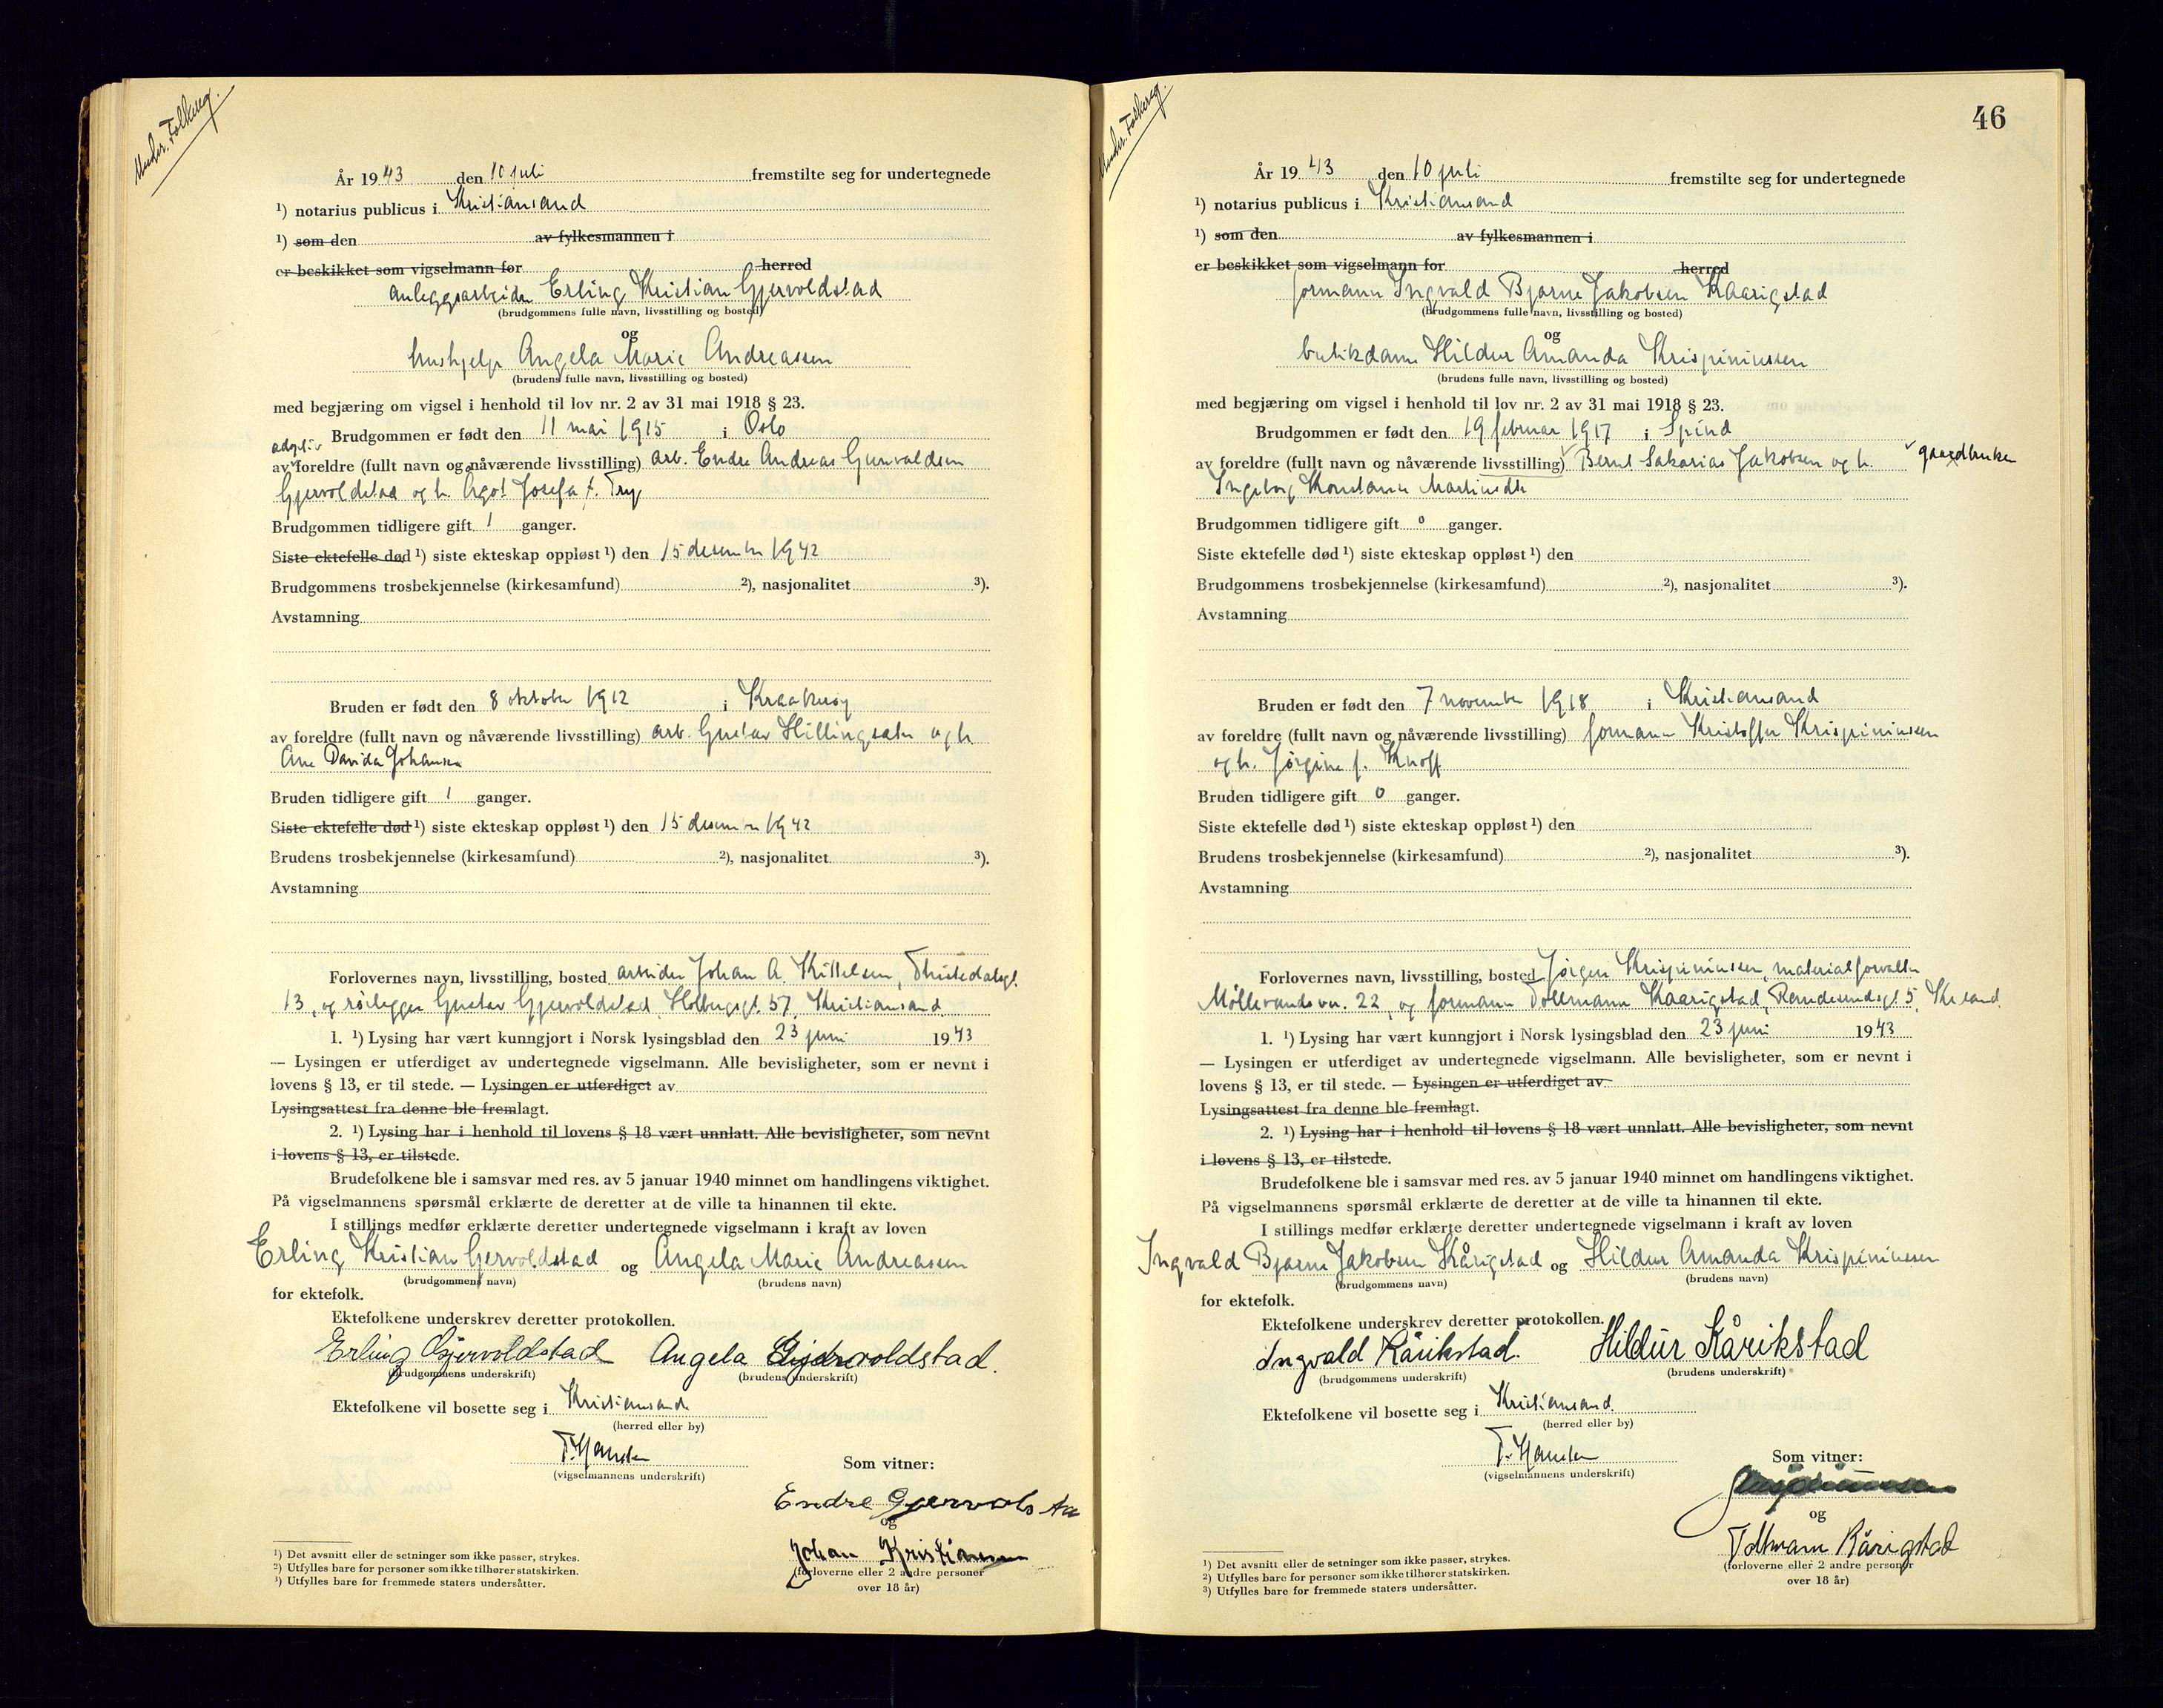 Underr. Folkereg.
År 1943 den 10 juli fremstilte seg for undertegnede
¹) notarius publicus i Kristiansand
¹) som den av fylkesmannen i
er beskikket som vigselmann for herred
anleggsarbeider Erling Kristian Gjervoldstad
(brudgommens fulle navn, livsstilling og bosted)
og
hushjelp Angela Marie Andreassen
(brudens fulle navn, livsstilling og bosted)
med begjæring om vigsel i henhold til lov nr. 2 av 31 mai 1918 § 23.
Brudgommen er født den 11 mai 1915 i Oslo
adoptiv
av foreldre (fullt navn og nåværende livsstilling) arb. Endre Andreas Gunvaldsen
Gjervoldstad og h. Agot Josefa f. Try
Brudgommen tidligere gift 1 ganger.
Siste ektefelle død ¹) siste ekteskap oppløst ¹) den 15 desember 1942
Brudgommens trosbekjennelse (kirkesamfund) ²), nasjonalitet ³).
Avstamning
Bruden er født den 8 oktober 1912 i Kraakerøy
av foreldre (fullt navn og nåværende livsstilling) arb. Gustav Hillingsæter og h.
Ane Davida Johansen
Bruden tidligere gift 1 ganger.
Siste ektefelle død ¹) siste ekteskap oppløst ¹) den 15 desember 1942
Brudens trosbekjennelse (kirkesamfund) ²), nasjonalitet ³).
Avstamning
Forlovernes navn, livsstilling, bosted arbeider Johan A. Kittelsen, Thistedalsgt.
13, og rørlegger Gustav Gjervoldstad, Holbergsgt. 57, Kristiansand
1. ¹) Lysing har vært kunngjort i Norsk lysingsblad den 23 juni 1943
— Lysingen er utferdiget av undertegnede vigselmann. Alle bevisligheter, som er nevnt i
lovens § 13, er til stede. — Lysingen er utferdiget av
Lysingsattest fra denne ble fremlagt.
2. ¹) Lysing har i henhold til lovens § 18 vært unnlatt. Alle bevisligheter, som nevnt
i lovens § 13, er tilstede.
Brudefolkene ble i samsvar med res. av 5 januar 1940 minnet om handlingens viktighet.
På vigselmannens spørsmål erklærte de deretter at de ville ta hinannen til ekte.
I stillings medfør erklærte deretter undertegnede vigselmann i kraft av loven
Erling Kristian Gjervoldstad og Angela Marie Andreassen
(brudgommens navn) (brudens navn)
for ektefolk.
Ektefolkene underskrev deretter protokollen.
Erling Gjervoldstad Angela Gjervoldstad.
(brudgommens underskrift) (brudens underskrift)
Ektefolkene vil bosette seg i Kristiansand
(herred eller by)
T. Hansen
(vigselmannens underskrift)
Som vitner:
Endre Gjervolsta
og
Johan Kristiansen
(forloverne eller 2 andre personer
over 18 år)
¹) Det avsnitt eller de setninger som ikke passer, strykes.
²) Utfylles bare for personer som ikke tilhører statskirken.
³) Utfylles bare for fremmede staters undersåtter.
46
Underr. Folkereg.
År 1943 den 10 juli fremstilte seg for undertegnede
¹) notarius publicus i Kristiansand
¹) som den av fylkesmannen i
er beskikket som vigselmann for herred
formann Ingvald Bjarne Jakobsen Kaarigstad
(brudgommens fulle navn, livsstilling og bosted)
og
butikdame Hildur Amanda Krispiniussen
(brudens fulle navn, livsstilling og bosted)
med begjæring om vigsel i henhold til lov nr. 2 av 31 mai 1918 § 23.
Brudgommen er født den 19 februar 1917 i Spind
av foreldre (fullt navn og nåværende livsstilling) Bernt Sakarias Jakobsen og h. gaardbruker
Ingeborg Konstanse Martinsdtr
Brudgommen tidligere gift 0 ganger.
Siste ektefelle død ¹) siste ekteskap oppløst ¹) den
Brudgommens trosbekjennelse (kirkesamfund) ²), nasjonalitet ³).
Avstamning
Bruden er født den 7 november 1918 i Kristiansand
av foreldre (fullt navn og nåværende livsstilling) formann Kristoffer Krispiniussen
og h. Jørgine f. Knoff
Bruden tidligere gift 0 ganger.
Siste ektefelle død ¹) siste ekteskap oppløst ¹) den
Brudens trosbekjennelse (kirkesamfund) ²), nasjonalitet ³).
Avstamning
Forlovernes navn, livsstilling, bosted Jørgen Krispiniussen, materialforvalter
Møllevandsvn. 22, og formann Tollmann Kaarigstad, Randesundsgt. 5, Kr.sand.
1. ¹) Lysing har vært kunngjort i Norsk lysingsblad den 23 juni 1943
— Lysingen er utferdiget av undertegnede vigselmann. Alle bevisligheter, som er nevnt i
lovens § 13, er til stede. — Lysingen er utferdiget av
Lysingsattest fra denne ble fremlagt.
2. ¹) Lysing har i henhold til lovens § 18 vært unnlatt. Alle bevisligheter, som nevnt
i lovens § 13, er tilstede.
Brudefolkene ble i samsvar med res. av 5 januar 1940 minnet om handlingens viktighet.
På vigselmannens spørsmål erklærte de deretter at de ville ta hinannen til ekte.
I stillings medfør erklærte deretter undertegnede vigselmann i kraft av loven
Ingvald Bjarne Jakobsen Kårigstad og Hildur Amanda Krispiniussen
(brudgommens navn) (brudens navn)
for ektefolk.
Ektefolkene underskrev deretter protokollen.
Ingvald Kårikstad. Hildur Kårikstad
(brudgommens underskrift) (brudens underskrift)
Ektefolkene vil bosette seg i Kristiansand.
(herred eller by)
T. Hansen
(vigselmannens underskrift)
Som vitner:
og
Tollmann Kårigstad
(forloverne eller 2 andre personer
over 18 år)
¹) Det avsnitt eller de setninger som ikke passer, strykes.
²) Utfylles bare for personer som ikke tilhører statskirken.
³) Utfylles bare for fremmede staters undersåtter.